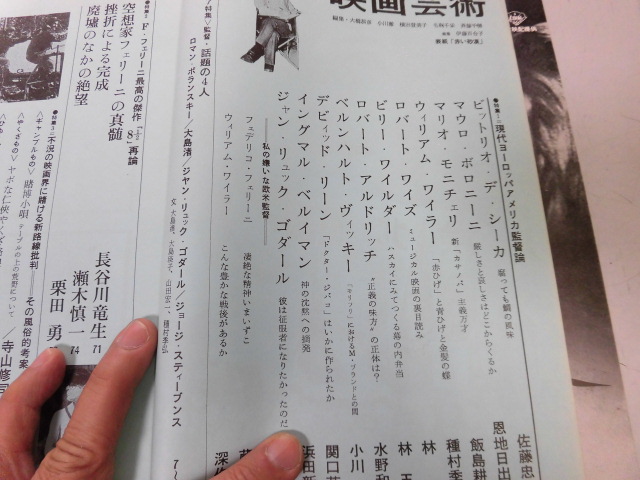 映画芸術
表紙「赤い砂漠」
●特集=Ⅰ現代ヨーロッパアメリカ監督論
ビットリオ・デ・シーカ 腐っても鯛の風味 佐藤忠
マウロ・ボロニーニ 厳しさと哀しさはどこからくるか 恩地日出
マリオ・モニチェリ 新「カサノバ」主義万才 飯島耕
ウィリアム・ワイラー 「赤ひげ」と青ひげと金髪の蝶 種村季
ロバート・ワイズ ミュージカル映画の裏目読み 林
ビリー・ワイルダー ハスカイにみてつくる幕の内弁当 林 玉
ロバート・アルドリッチ “正義の味方”の正体は? 水野和
ベルンハルト・ヴィッキー 「モリツリ」におけるM・ブランドとの間 小川
デビィッド・リーン 「ドクター・ジバゴ」はいかに作られたか 関口
イングマル・ベルイマン 神の沈黙への挑発 浜田新
ジャン・リュック・ゴダール 彼は征服者になりたかったのだ
――私の嫌いな欧米監督――
フェデリコ・フェリーニ 凄絶な精神いまいずこ
ウィリアム・ワイラー こんな豊かな戦後があるか 深
特集Ⅴ監督・話題の4人
ロマン・ポランスキー/大島渚/ジャン・リュック・ゴダール/ジョージ・スティーブンス
文 大島渚、大島瑛子、山田宏一、種村季弘 7〜
●特集=Ⅱ F・フェリーニ最高の傑作「8½」再論
空想家フェリーニの真髄 長谷川竜生 71
挫折による完成 瀬木慎一 74
廃墟のなかの絶望 栗田 勇
●特集=3 不況の映画界に賭ける新路線批判――その風俗的考案
〈ギャンブルもの〉 賭博小唄 テーブルの上の荒野について 寺山修司
〈やくざもの〉 ヤボな仁侠やくざ